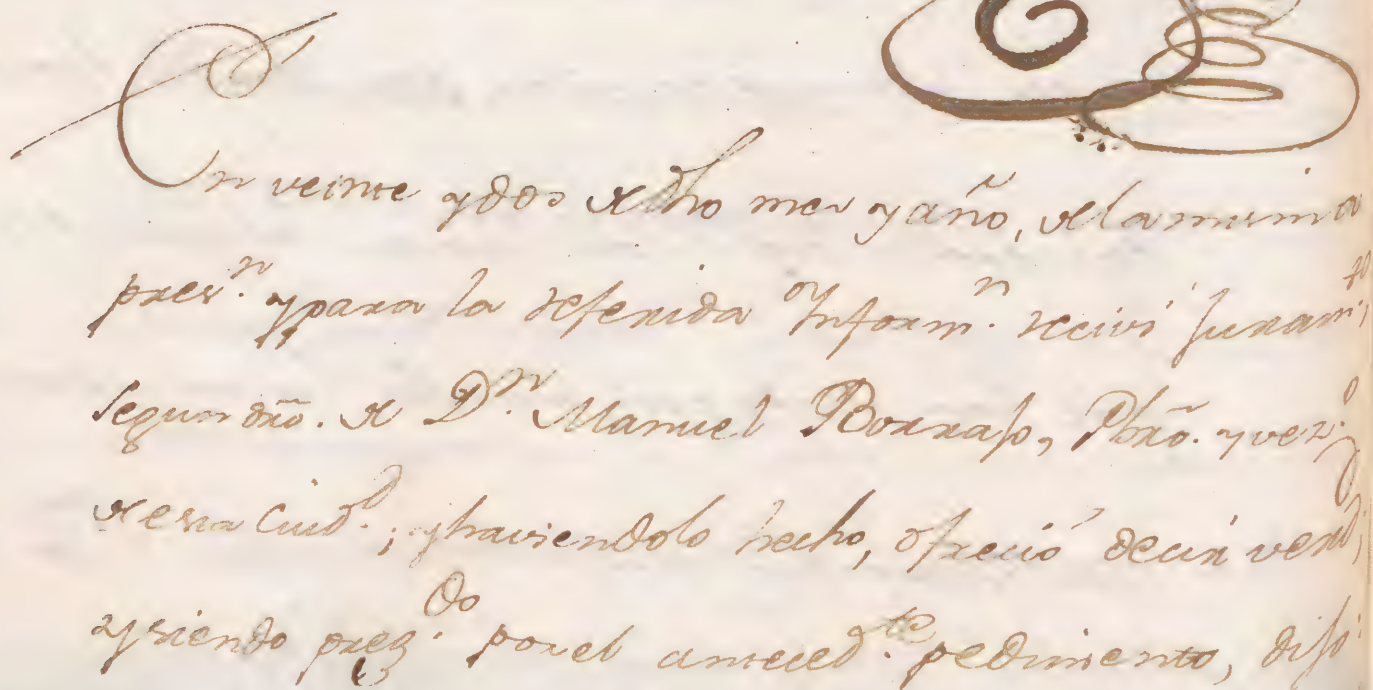 En veinte y dos de dho mes y año, de la misma
pres.n y para la referida Inform.n recivi Juram.to,
segun dro. de D.n Manuel Borraso, Pbro. y vez.o
de esta Ciud.d; y haviendolo hecho, ofreció decir verd.d,
y siendo preg.do por el anteced.te pedimento, dijo: